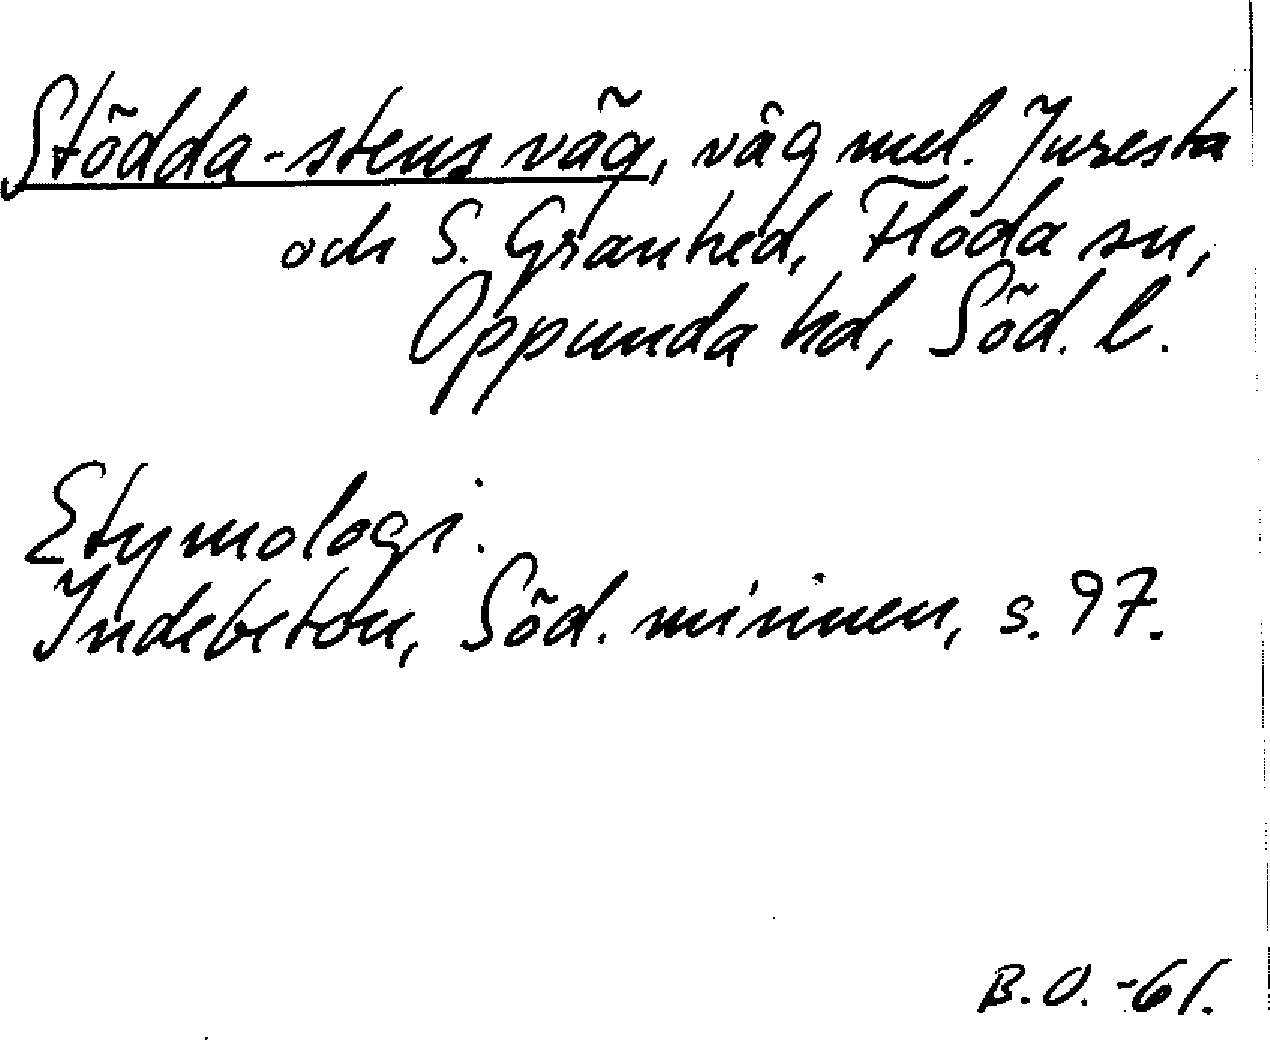 Stödda-stens väg, väg mel. Juresta
och S. Granhed, Flöda sn,
Oppunda hd, Söd. l.
Etymologi.
Indebetou, Söd. minnen, s. 97.
B.O. -61.